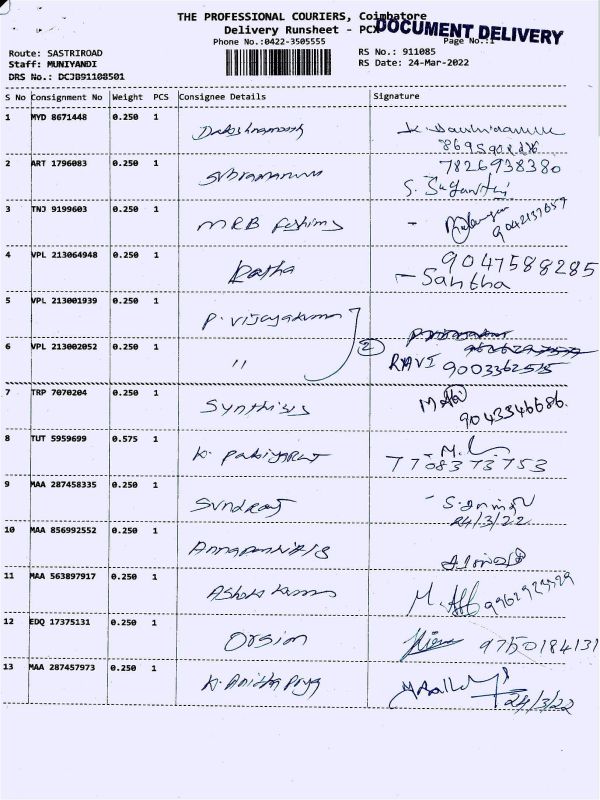 THE PROFESSIONAL COURIERS, Coimbatore
Delivery Runsheet - PCX
DOCUMENT DELIVERY
Phone No.:0422-3505555
Page No.:1
Route: SASTRIROAD
RS No.: 911085
Staff: MUNIYANDI
RS Date: 24-Mar-2022
DRS No.: DCJB91108501
S No Consignment No Weight PCS Consignee Details Signature
1 MYD 8671448 0.250 1
2 ART 1796083 0.250 1 7826938380
S. Suganthi
3 TNJ 9199603 0.250 1 MRB Fashims -
4 VPL 213064948 0.250 1 Radha 9047588285
- Santha
5 VPL 213001939 0.250 1 P. Vijayakumar
6 VPL 213002052 0.250 1 " 2 RAVI 9003362515
7 TRP 7070204 0.250 1 Synthisis M. Abi
9043346686.
8 TUT 5959699 0.575 1 - M.
7708373753
9 MAA 287458335 0.250 1 Sundraj
24/3/22
10 MAA 856992552 0.250 1
11 MAA 563897917 0.250 1 Ashok Kumar 9962923529
12 EDQ 17375131 0.250 1 Orsim 9750184131
13 MAA 287457973 0.250 1 K. Anitha Priya
24/3/22